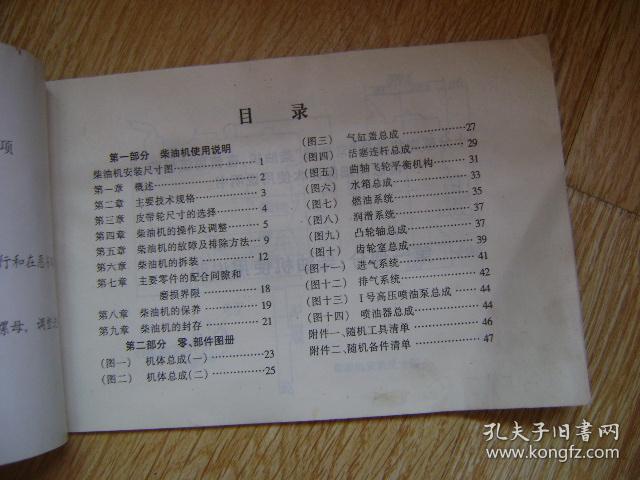 目 录
第一部分 柴油机使用说明
柴油机安装尺寸图……………1
第一章 概述……………2
第二章 主要技术规格……………3
第三章 皮带轮尺寸的选择……………4
第四章 柴油机的操作及调整……………5
第五章 柴油机的故障及排除方法……9
第六章 柴油机的拆装……………12
第七章 主要零件的配合间隙和
磨损界限……………18
第八章 柴油机的保养……………19
第九章 柴油机的封存……………21
第二部分 零、部件图册
(图一) 机体总成(一)……………23
(图二) 机体总成(二)……………25
(图三) 气缸盖总成……………27
(图四) 活塞连杆总成……………29
(图五) 曲轴飞轮平衡机构……………31
(图六) 水箱总成……………33
(图七) 燃油系统……………35
(图八) 润滑系统……………37
(图九) 凸轮轴总成……………37
(图十) 齿轮室总成……………39
(图十一) 进气系统……………41
(图十二) 排气系统……………42
(图十三) Ⅰ号高压喷油泵总成……………44
(图十四) 喷油器总成……………44
附件一、随机工具清单……………46
附件二、随机备件清单……………47
项
行和在恶
螺母，调整
孔夫子旧书网
www.kongfz.com